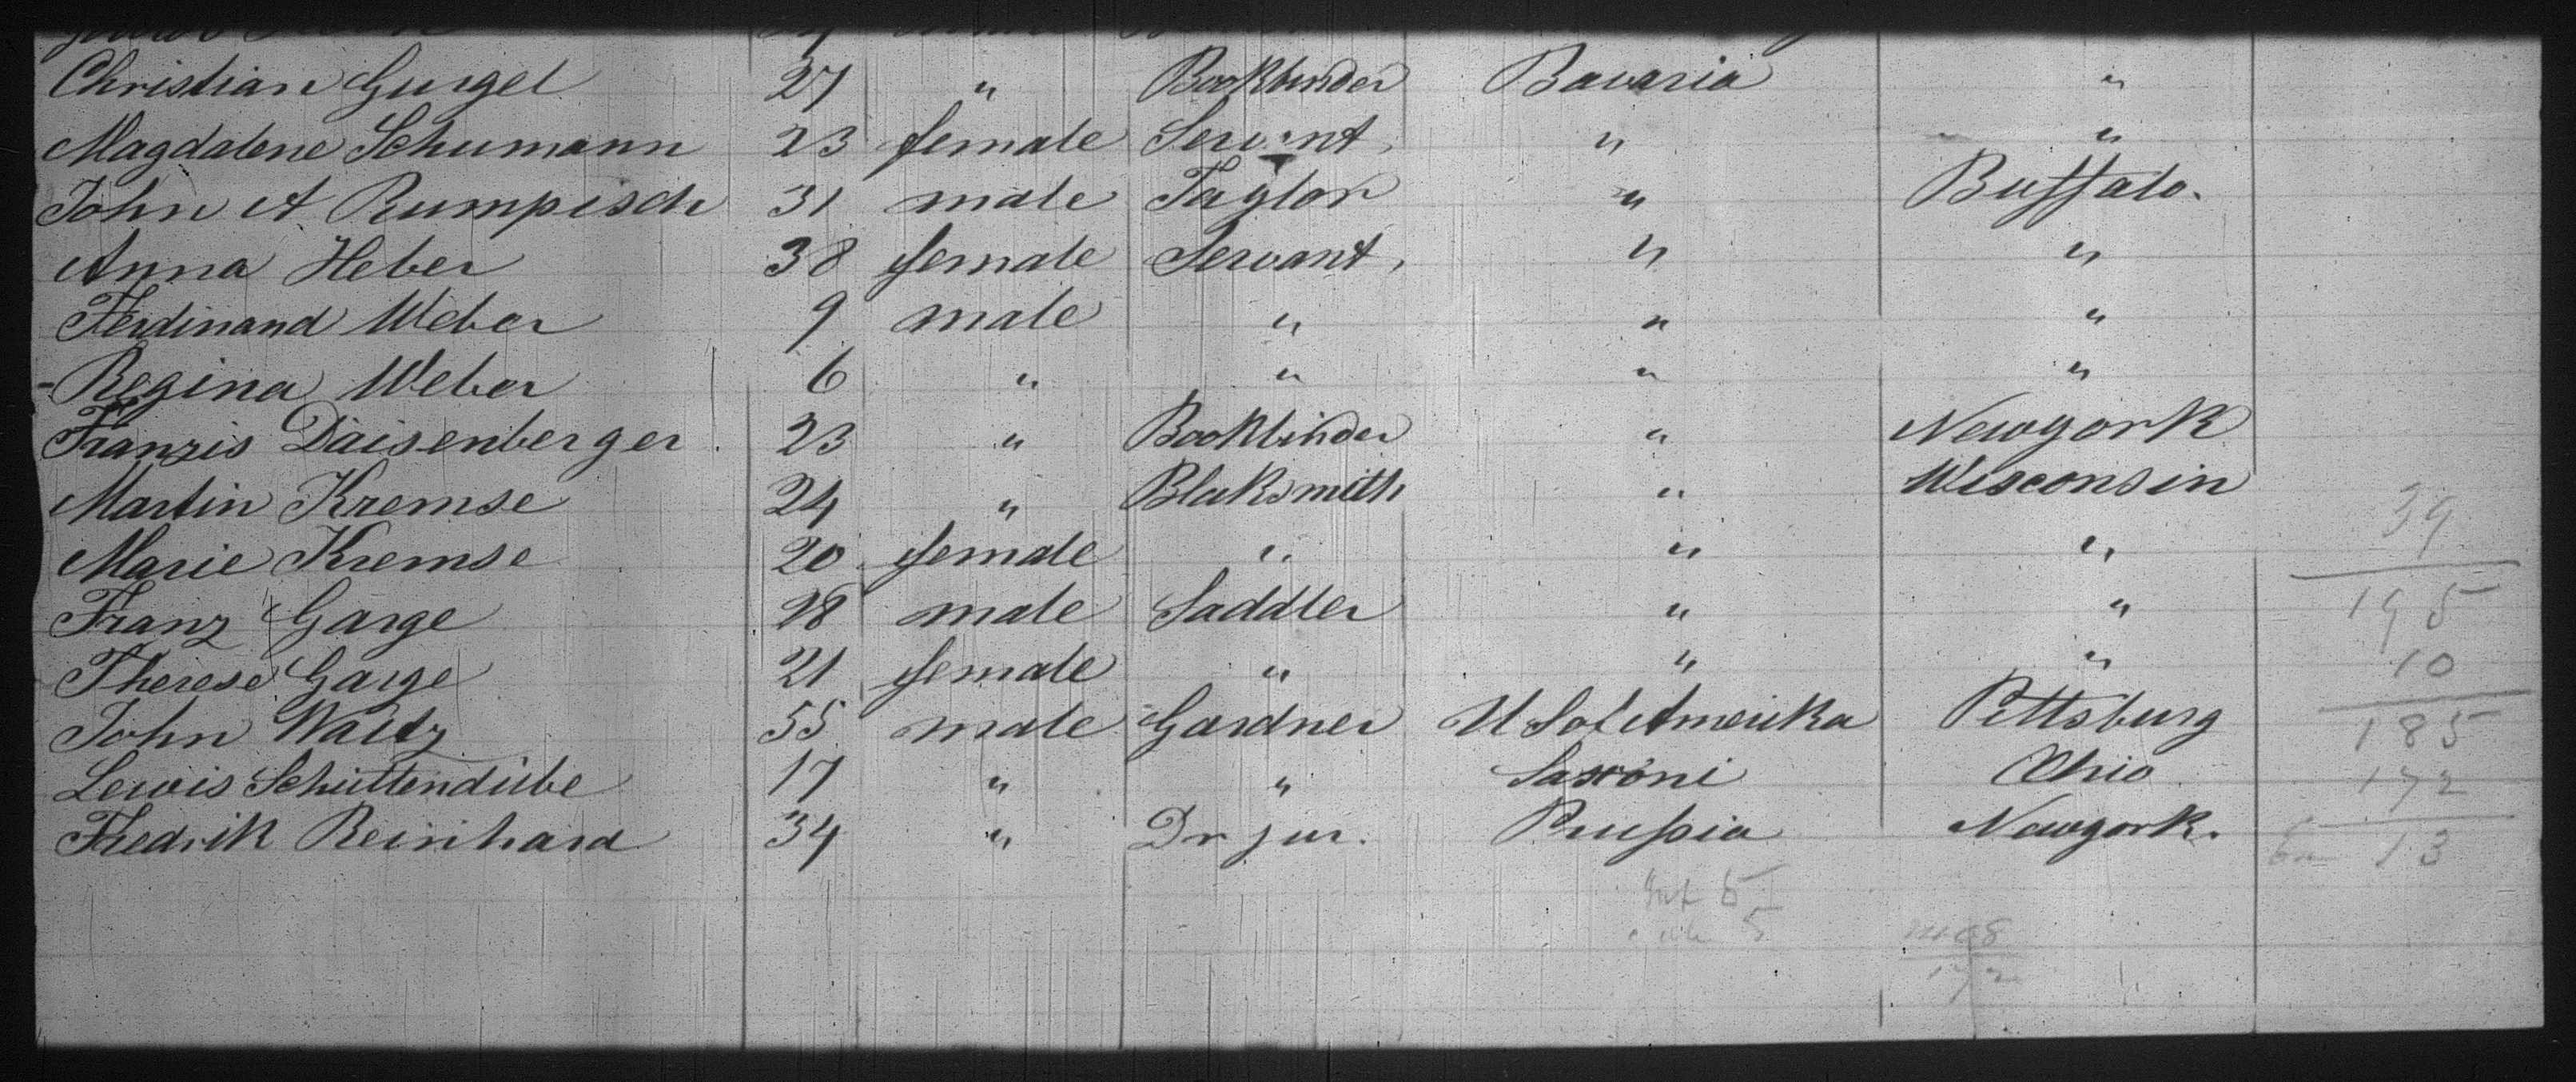 Christian Gurgel 27 " Bookbinder Bavaria "
Magdalene Schumann 23 female Servant, " "
John A Rumpisch 31 male Taylor " Buffalo.
Anna Heber 38 female Servant, " "
Ferdinand Weber 9 male " " "
Regina Weber 6 " " " "
Franzis Daisenberger. 23 " Bookbinder " Newyork
Martin Kremse 24 " Blaksmith " Wisconsin
Marie Kremse 20 female " " "
39
Franz Garge 28 male Saddler " "
195
Therese Garge 21 female " " "
10
John Waltz 55 male Gardner U S of Amerika Pittsburg
185
Lewis Schüttendübe 17 " " Saxoni Ohio
172
Fredrik Reinhard 34 " Dr jur. Prußia Newyork.
13
5
5
172